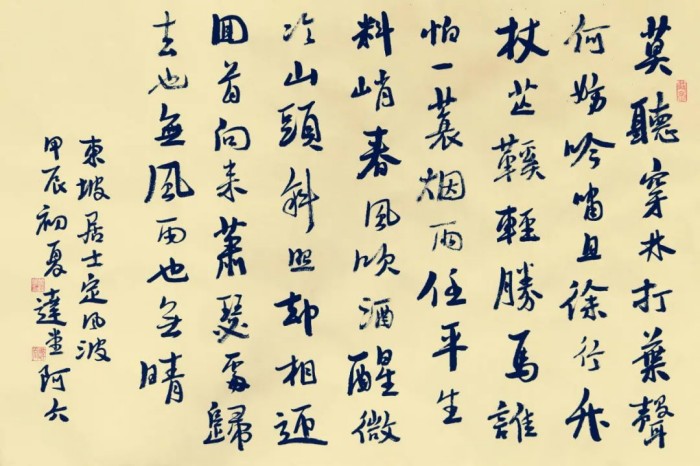 莫聽穿林打葉聲
何妨吟嘯且徐行竹
杖芒鞵輕勝馬誰
怕一蓑烟雨任平生
料峭春風吹酒醒微
冷山頭斜照却相迎
回首向來蕭瑟處歸
去也無風雨也无晴
東坡居士定風波
甲辰初夏達阿六